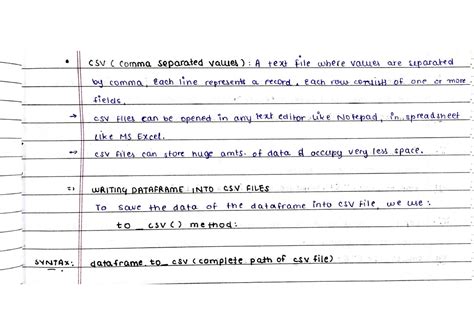 • CSV (comma separated values) : A text file where values are separated
by comma, Each line represents a record, each row consist of one or more
fields.
→ CSV files can be opened in any text editor like Notepad, in spreadsheet
like MS Excel.
→ CSV files can store huge amts. of data & occupy very less space.
WRITING DATAFRAME INTO CSV FILES
To save the data of the dataframe into CSV file, we use :
to _ csv ( ) method :
SYNTAX : dataframe. to _ csv ( complete path of csv file)